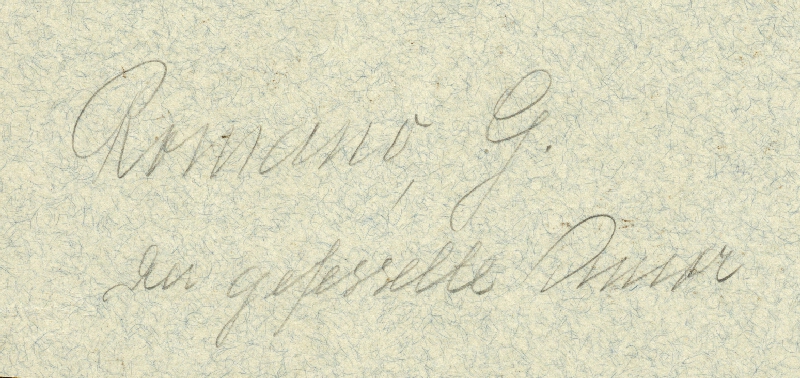 Romano, G.
der gefesselte Amor